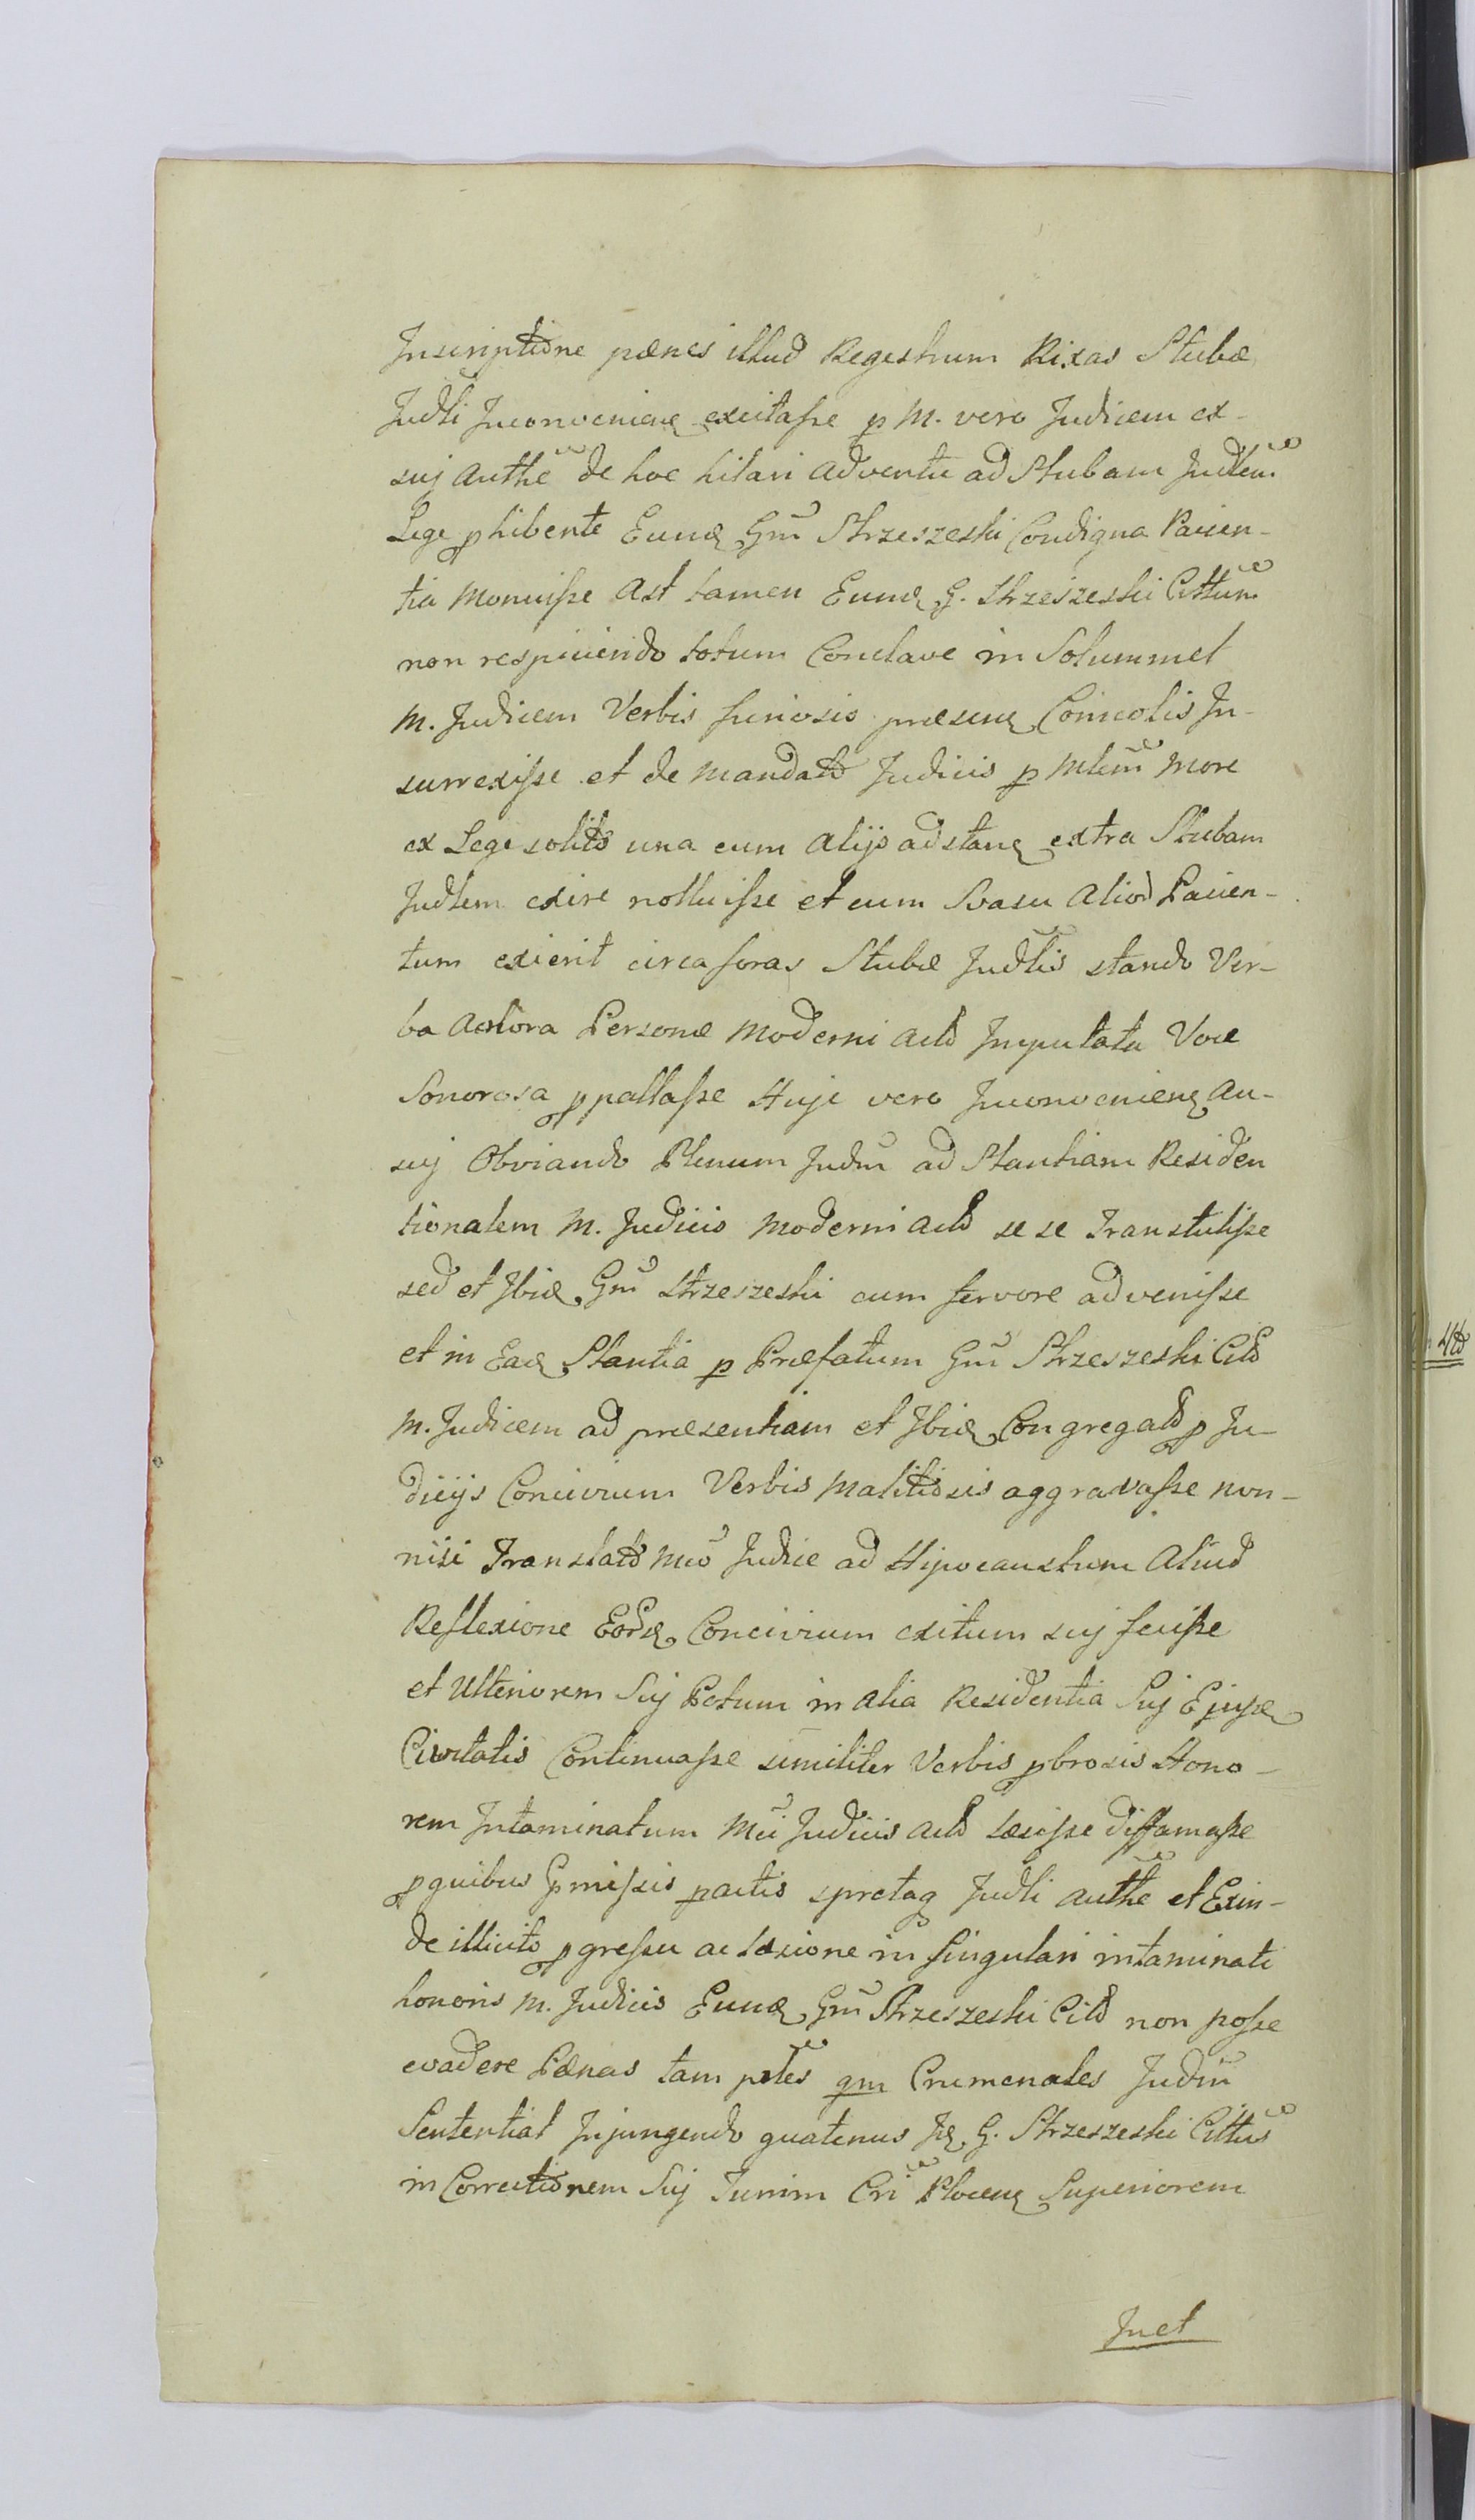 Inscriptione pænes illud Regestrum Rixas Stubæ
Judli Inconvenienꝫ excitasse p M. vero Judicem ex-
suj Authẽ de hoc hilari adventu ad Stubam Judlem
Lege phibente Eundꝫ Gm̃ Strzeszeski Condigna Pacien-
tia Monuisse Ast tamen Eundꝫ G. Strzeszeski Cittum
non respiciendo totum Conclave in Solummet
M. Judicem Verbis furiosis præsenꝫ Coincolis In-
surrexisse et de mandato Judicis p Mlem̃ more
ex Lege solito una cum alijs adstanꝫ extra Stubam
Judlem exire nolluisse et cum Svasu aliod Pacien-
tum exierit circa foras Stubæ Judlis stando Ver-
ba Personæ Moderni acto Imputata Voce
Sonorosa ppallasse Huje vero Inconvenienꝫ au-
suj Obviando Plenum Judm̃ ad Stantiam Residen
tionalem M. Judicis Moderni acto se se Transtulisse
sed et Ibidꝫ Gm̃ Strzeszeski cum fervore advenisse
et in Eadꝫ Stantia p Præfatum Gm̃ Strzeszeski Citd
M. Judicem ad præsentiam et Ibidꝫ Congregatd p Ju-
dicijs Concivium Verbis Malitiosis aggravasse non-
nisi Translato Mco Judice ad Hipocaustum Aliud
Reflexione Eordꝫ Concivium exitum suj fecisse
et Ulteriorem Suj Potum in alia Residentia Suj Ejusdꝫ
Civitatis Continuasse similiter Verbis pbrosis Hono-
rem Intaminatum Mci Judicis acto læsisse diffamasse
p quibus pmissis pactis spretaꝗ Judli authẽ et Exin-
de illicito pgressu ac læsione in Singulari intaminati
honoris M. Judicis Eundꝫ Gm̃ Strzeszeski Citd non posse
evadere Pænas tam pnles qm Crimenales Judm̃
Sententiat Injungendo quatenus Idꝫ G. Strzeszeski Cittus
in Correctionem Suj Turrim Cri Plocenꝫ Superiorem
Inct